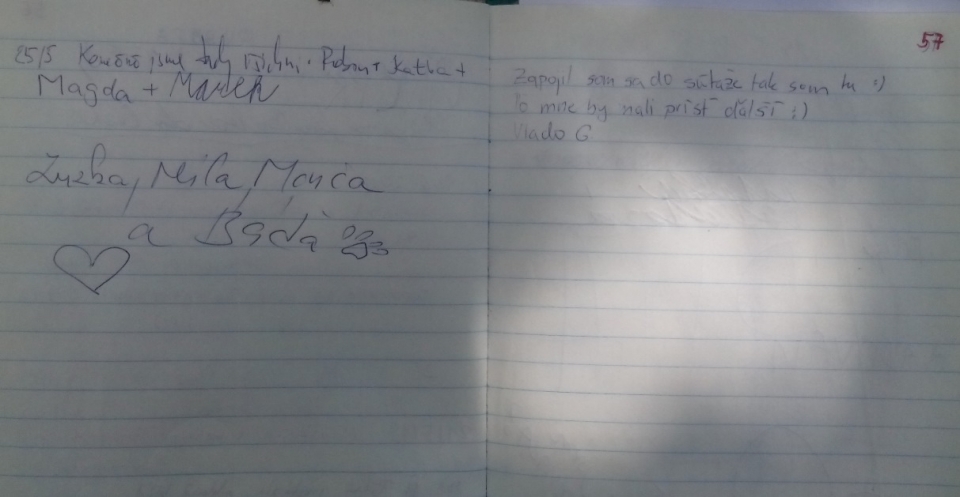 25/5 Konečně jsme tady všichni. Robin + Katka +
Magda + Marek
Zuzka, Míla, Monča
a Báďa
57
Zapojil som sa do súťaže tak som tu :)
Po mne by mali prísť ďalší ;)
Vlado G